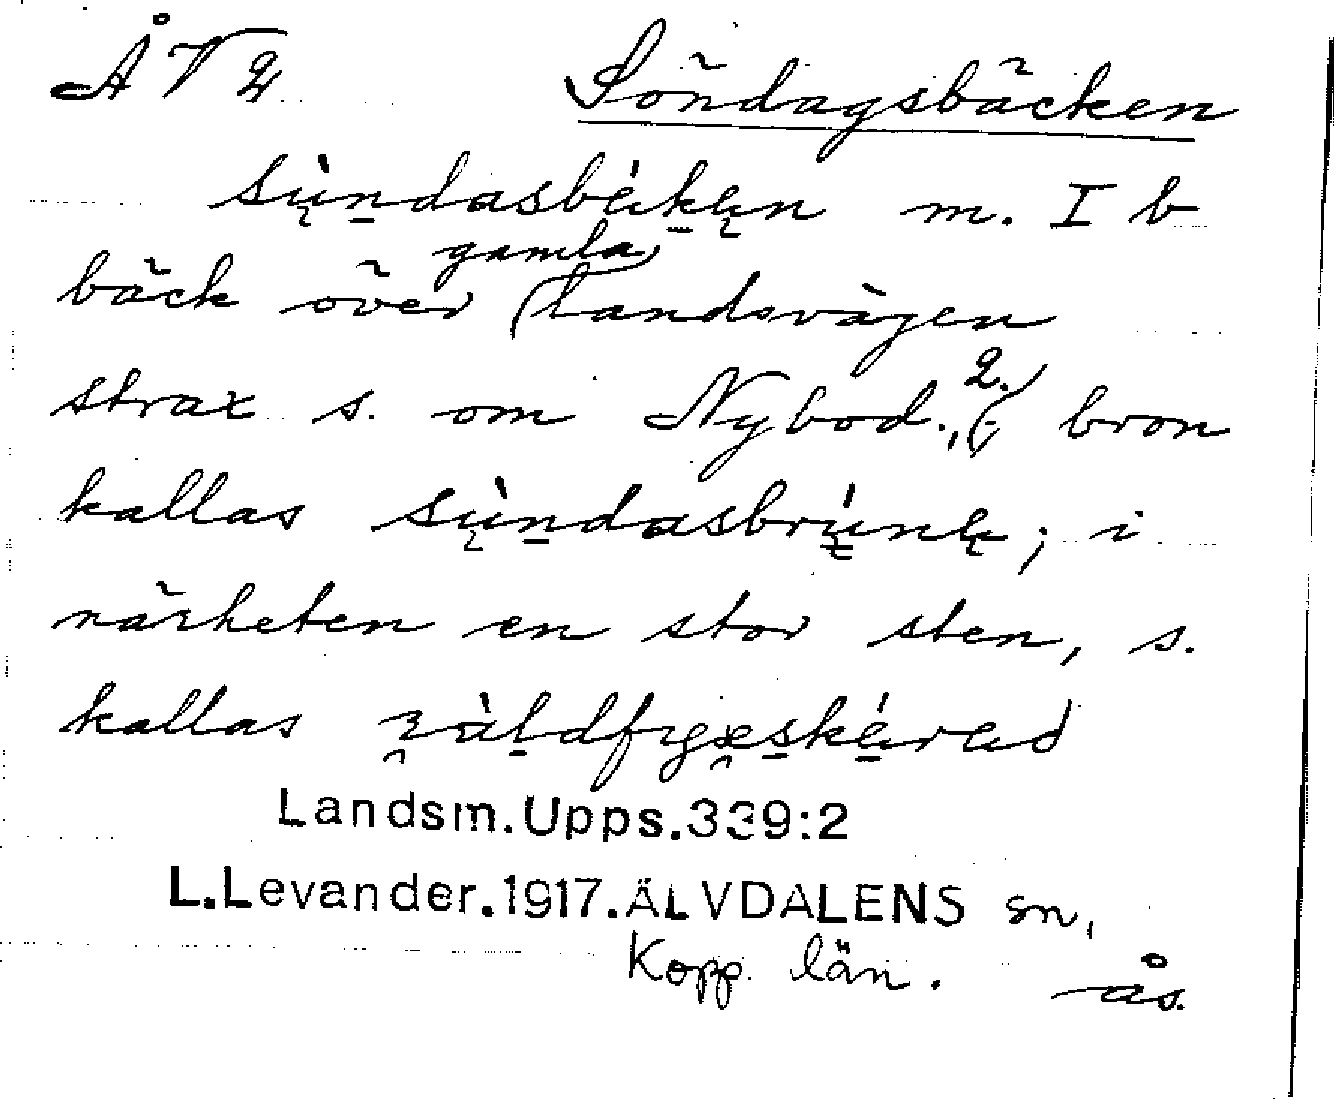 ÅV2 Söndagsbäcken
sùndasbèkęn m. I b
bäck över (gamla) landsvägen
strax s. om Nybod., 2. bron
kallas sùndasbrúnę; i
närheten en stor sten, s.
kallas
Landsm.Upps.339:2
L.Levander.1917.ÄLVDALENS sn,
Kopp. län. ås.